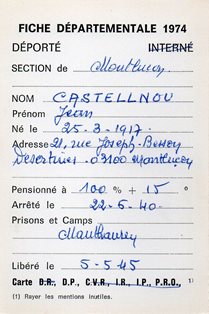 FICHE DÉPARTEMENTALE 1974
DÉPORTÉ INTERNÉ
SECTION de Montluçon
NOM CASTELLNOU
Prénom Jean
Né le 25-3-1917
Adresse 21, rue Joseph-Besson
Desertines - 03100 Montluçon
Pensionné à 100 % + 15 °
Arrêté le 22-5-40
Prisons et Camps
Mauthausen
Libéré le 5-5-45
Carte D.R., D.P., C.V.R., I.R., I.P., P.R.O., 1)
(1) Rayer les mentions inutiles.